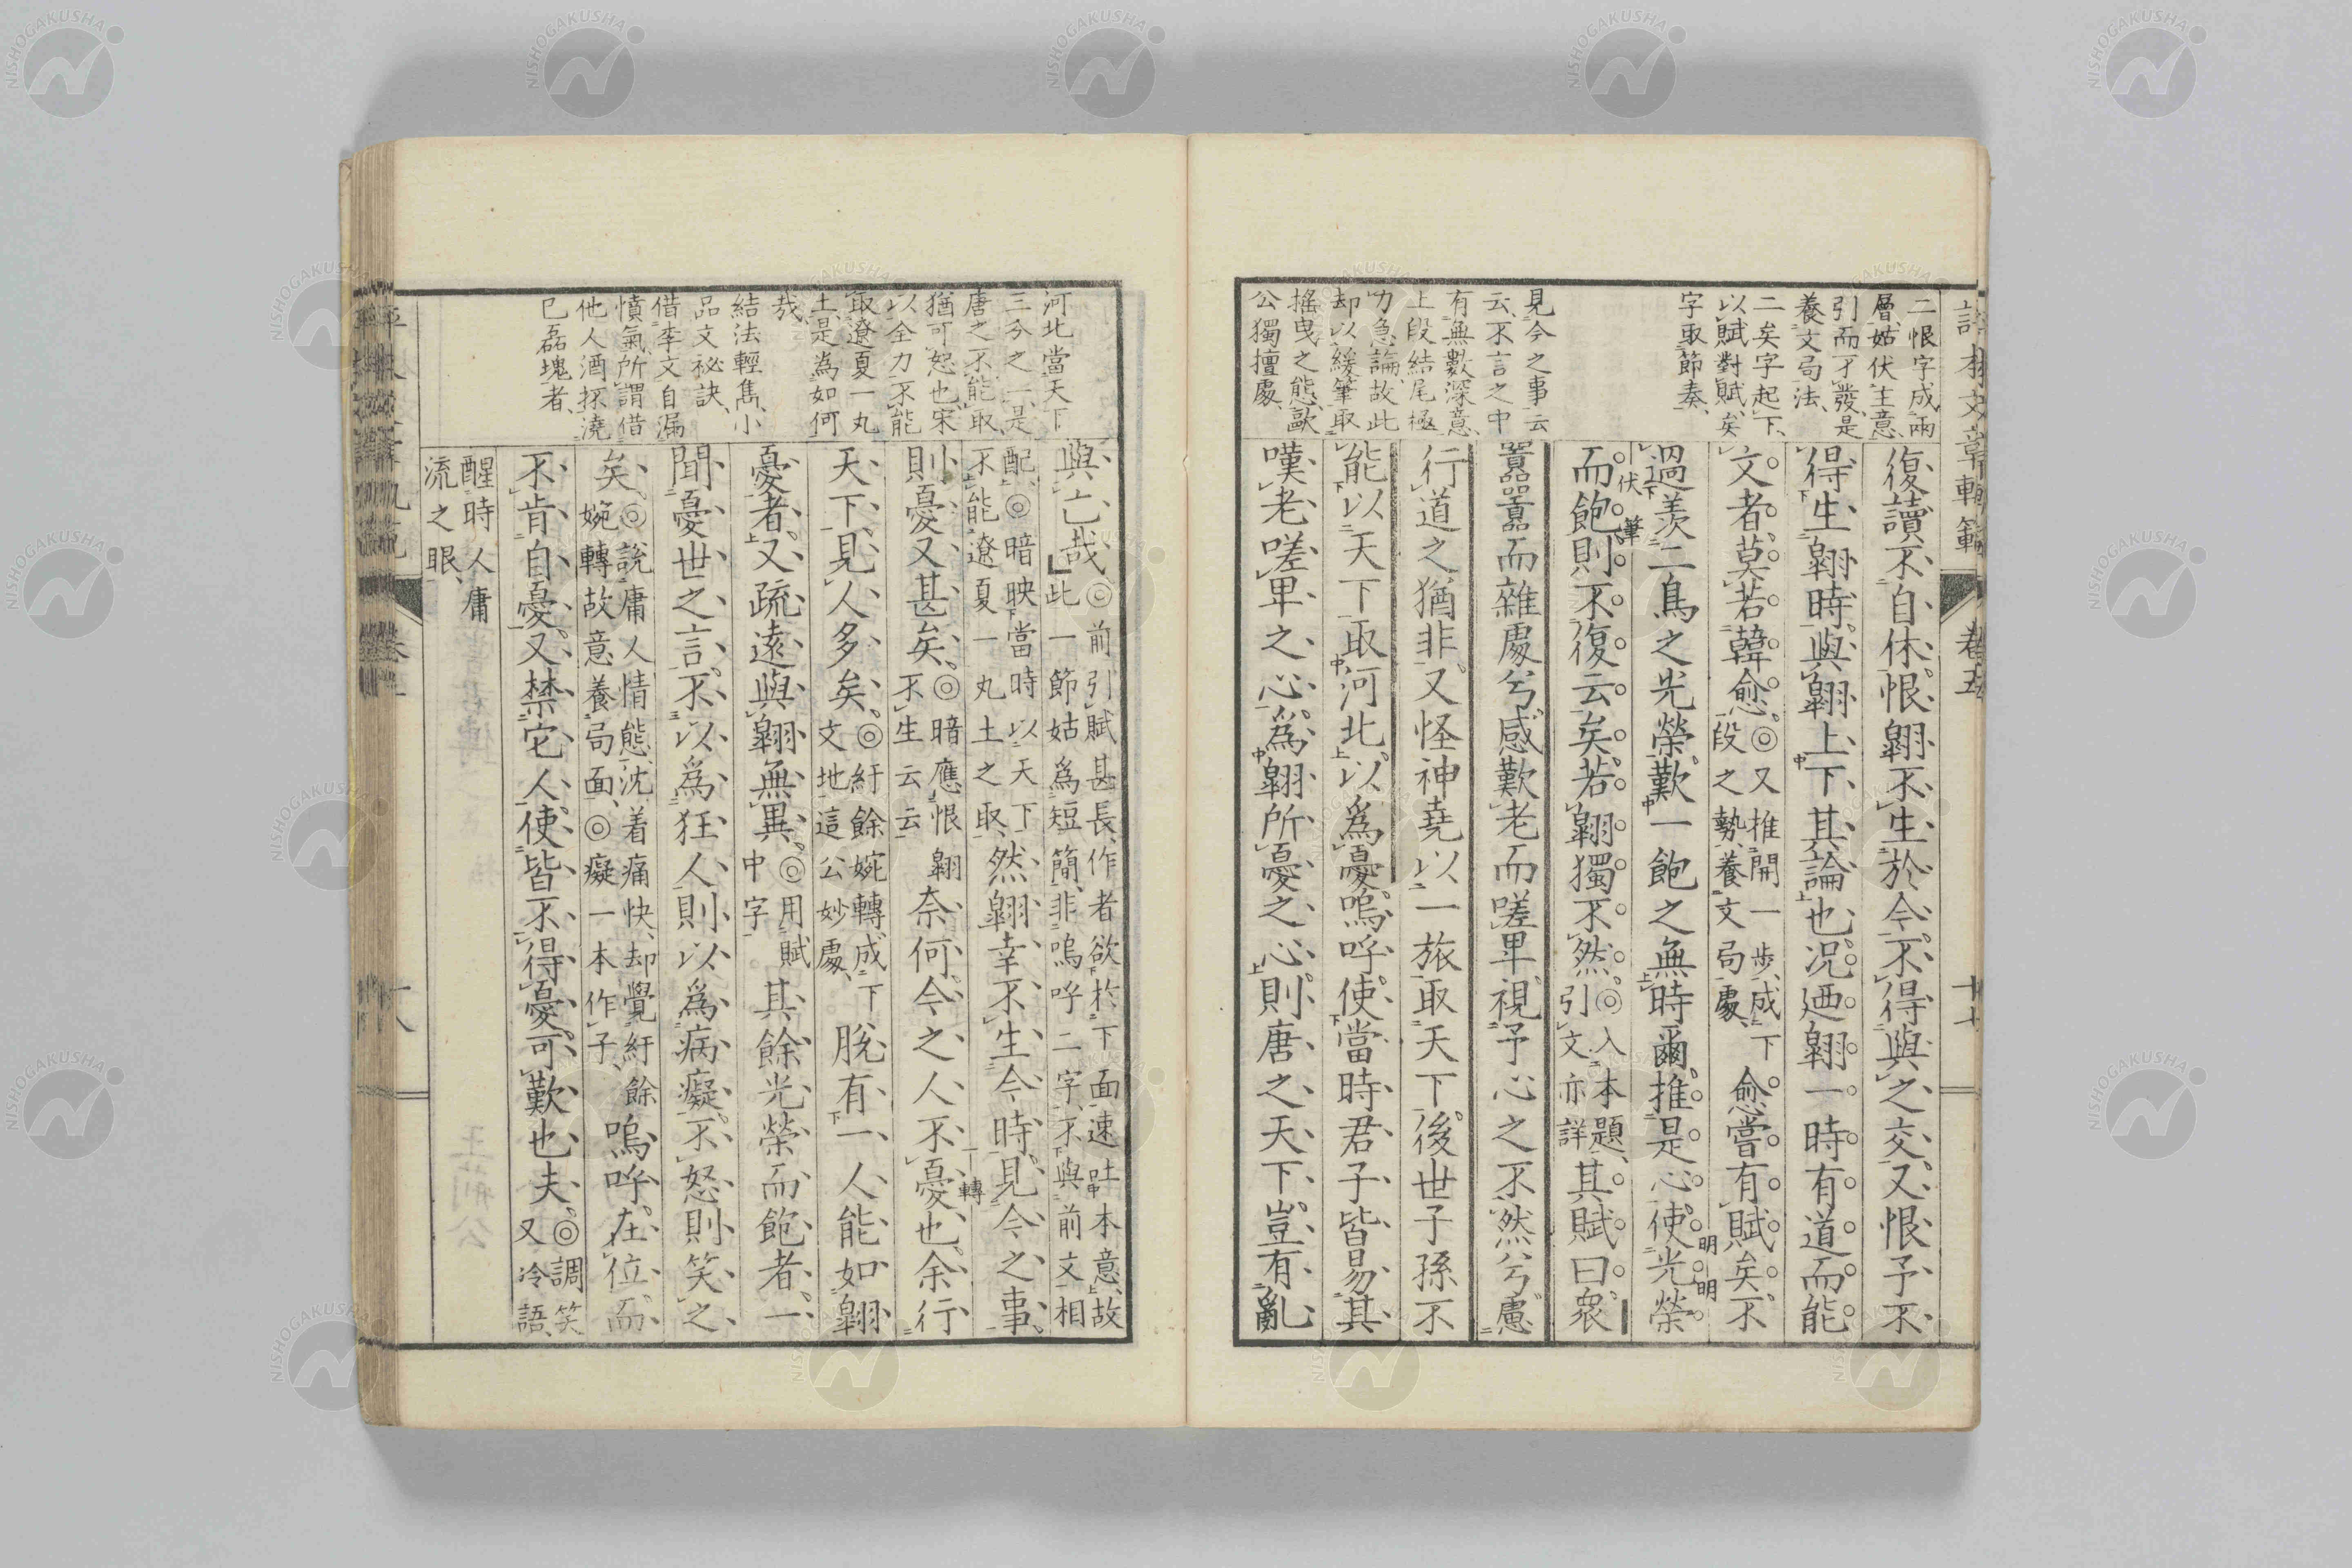 二恨字成兩
層、姑伏主意、
引而不發、是
養文局法、
二矣字起下、
以賦對賦、矣
字取節奏、
見今之事云
云、不言之中
有無數深意、
上段結尾極
力急論、故此
却以緩筆取
搖曳之態、歐
公獨擅處、
復讀不自休、恨翺不生於今、不得與之交、又恨予不
得生翺時、與翺上下其論也、況廼翺一時有道而能
文者、莫若韓愈、◎又推開一步、成下
段之勢、養文局處、愈嘗有賦矣、不
過羨二鳥之光榮、歎一飽之無時爾、推是心使光榮
而飽、則不復云矣、若翺獨不然、◎入本題、
引文亦詳其賦曰、衆
囂囂而雜處兮、感歎老而嗟卑、視予心之不然兮、慮
行道之猶非、又怪神堯以一旅取天下、後世子孫不
能以天下取河北、以爲憂、嗚呼、使當時君子皆易其
嘆老嗟卑之心、爲翺所憂之心、則唐之天下、豈有亂
卷五
河北當天下
三分之一、是
唐之不能取、
猶可恕也、宋
以全力不能
取遼夏一丸
土、是爲如何
哉、
結法輕雋、小
品文祕訣、
借李文自漏
憤氣、所謂借
他人酒杯澆
己磊塊者、
與亡哉、◎前引賦甚長、作者欲於下面速吐本意、故
此一節姑爲短簡、非嗚呼二字、不與前文相
配、◎暗映當時以天下
不能遼夏一丸土之取、然翺幸不生今時、見今之事、
則憂又甚矣、◎暗應恨翺
不生云云奈何今之人不憂也、余行
天下、見人多矣、◎紆餘婉轉、成下
文地、這公妙處、脫有一人能如翺
憂者、又疏遠與翺無異、◎用賦
中字其餘光榮而飽者、一
聞憂世之言、不以爲狂人、則以爲病癡、不怒則笑之
矣、◎說庸人情態、沈着痛快、却覺紆餘
婉轉、故意養局面、◎癡一本作子、嗚呼、在位而
不肯自憂、又禁它人使皆不得憂、可歎也夫、◎調笑
又冷語、
醒時人庸
流之眼、